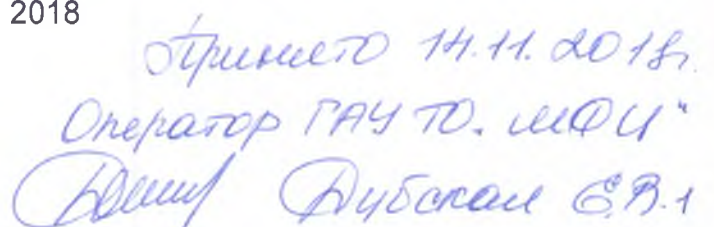 2018
Принято 14.11.2018г.
Оператор ГАУ ТО "МФЦ"
Дубская Е.В.